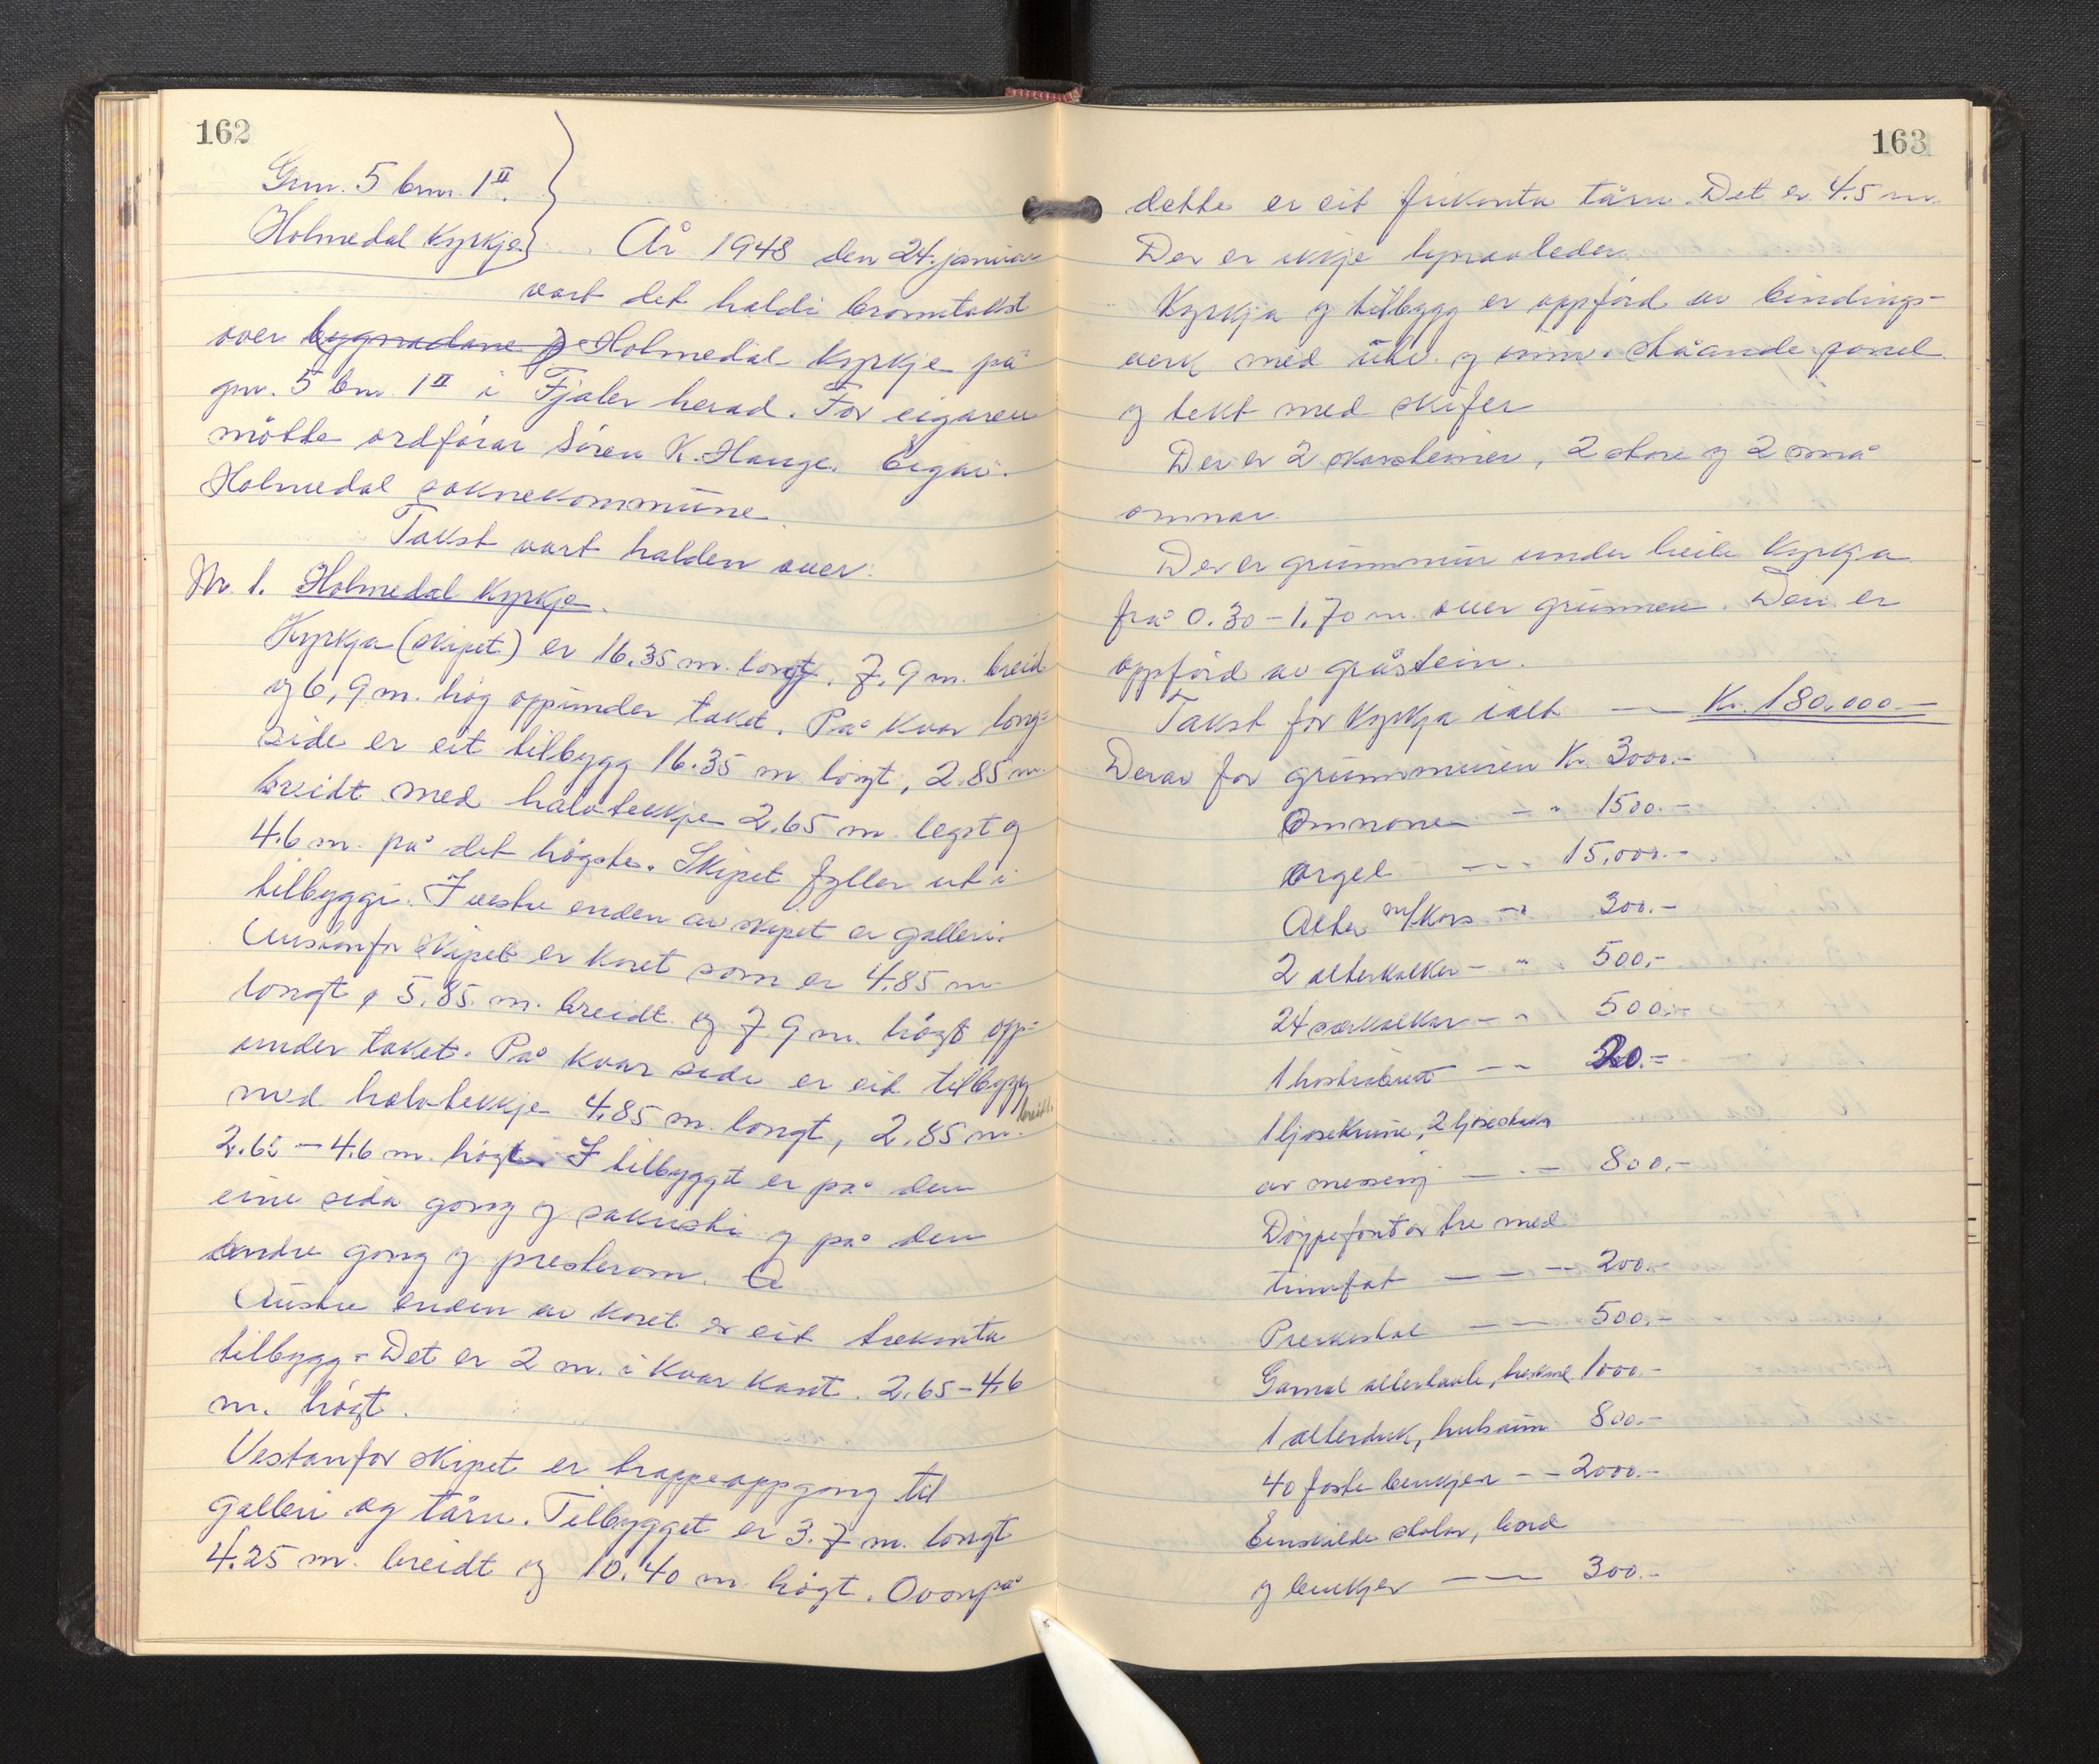 162
Gnr. 5 bnr. 1 II.
Holmedal Kyrkje
År 1948 den 24. januar
vart det haldi branntakst
over bygnadane og Holmedal Kyrkje på
gnr. 5 bnr. 1 II i Fjaler herad. For eigaren
mötte ordförar Sören K. Hauge. Eigar:
Holmedal soknekommune.
Takst vart halden over:
Nr. 1. Holmedal Kyrkje.
Kyrkja (skipet) er 16.35 m. langt, 7,9 m. breid
og 6,9 m. hög oppunder taket. På kvar lang-
side er eit tilbygg 16.35 m. langt, 2.85 m.
breidt med halvtekkje 2.65 m. legst og
4.6 m. på det högste. Skipet fyller ut i
tilbyggi. I vestre enden av skipet er galleri.
Austanfor skipet er koret som er 4.85 m.
langt, 5.85 m. breidt og 7.9 m. högt opp-
under taket. På kvar side er eit tilbygg
med halvtekkje 4.85 m. langt, 2.85 m. breidt.
2.65 - 4.6 m. högt. I tilbygget er på den
eine sida gang og sakristi og på den
andre gang og presterom. A
Austre enden av koret er eit trekanta
tilbygg. Det er 2 m. i kvar kant. 2.65 - 4.6
m. högt.
Vestanfor skipet er trappeoppgang til
galleri og tårn. Tilbygget er 3.7 m. langt
4.25 m. breidt og 10.40 m. högt. Ovanpå
163
dette er eit firkanta tårn. Det er 4.5 m.
Der er ikkje lynavleder.
Kyrkja og tilbygg er oppförd av bindings-
verk med utv. og innv. ståande panel
og tekt med skifer
Der er 2 skorsteiner, 2 store og 2 små
omnar.
Der er grunnmur under heile kyrkja
frå 0.30 - 1.70 m. over grunnen. Den er
oppförd av gråstein.
Takst for kyrkja ialt — Kr. 180,000.-
Derav for grunnmuren Kr. 3000.-
Omnane - " 1500.-
Orgel - - - 15,000.-
Alter m/kors - " 300.-
2 alterkalker - " 500.-
24 særkalkar - " 500.-
1 hostiebrett - - 20.-
1 ljosekrune, 2 ljosestakar
av messing - - - 800.-
Döypefont av tre med
tinnfat - - - 200.-
Preikestol - - 500.-
Gamal altertavle, 1000.-
1 alterduk, hulsaum 800.-
40 faste benkjer - - 2000.-
Einskilde stolar, bord
og benkjer - - 300.-